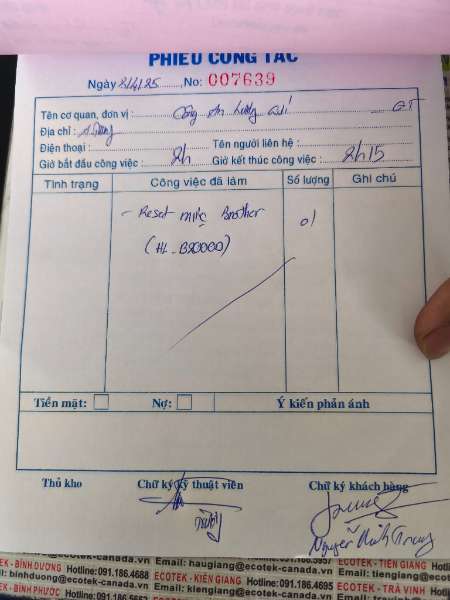 PHIẾU CÔNG TÁC
Ngày 2/4/25 No: 007639
Tên cơ quan, đơn vị : Công An Lương
Địa chỉ :
Điện thoại : Tên người liên hệ :
Giờ bắt đầu công việc : 8h Giờ kết thúc công việc : 8h15
Tình trạng Công việc đã làm Số lượng Ghi chú
- Reset mực Brother 01
(HL_B2000D)
Tiền mặt: Nợ: Ý kiến phản ánh
Thủ kho Chữ ký kỹ thuật viên Chữ ký khách hàng
Nguyễn Đình Trung
TEK - BÌNH DƯƠNG Hotline:091.186.4688 ECOTEK - KIÊN GIANG Hotline:091.186.5695 ECOTEK - TIỀN GIANG
il: binhduong@ecotek-canada.vn Email: kiengiang@ecotek-canada.vn Email: tiengiang@ecote
TEK - BÌNH PHƯỚC Hotline:091.186 Hotline:091.186.4996 ECOTEK - TRÀ VINH Hotline: